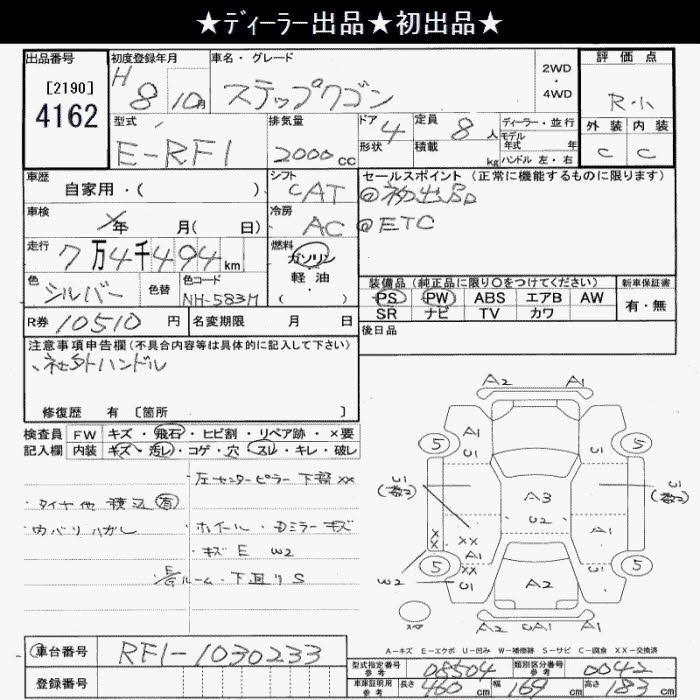 ★ディーラー出品★初出品★
出品番号
[2190]
4162
初度登録年月
H 8 10月
車名・グレード
ステップワゴン
2WD
・
4WD
評価点
R・小
外装 内装
C C
型式
E-RF1
排気量
2000cc
ドア 4
形状
定員 8人
積載 kg
ディーラー・並行
モデル
年式 年
ハンドル 左・右
車歴
自家用・( )
シフト
CAT
セールスポイント (正常に機能するものに限ります)
@初出品
@ETC
車検
年 月( 日)
冷房
AC
走行
7万4千494km
燃料
ガソリン
軽油
( )
色
シルバー
色替
色コード
NH-583M
装備品 (純正品に限り○をつけてください)
PS PW ABS エアB AW
SR ナビ TV カワ
新車保証書
有・無
R券 10510円
名変期限 月 日
後日品
注意事項申告欄(不具合内容等は具体的に記入して下さい)
、社外ハンドル
修復歴 有 [箇所 ]
検査員
記入欄
FW キズ・飛石・ヒビ割・リペア跡・×要
内装 キズ・汚レ・コゲ・穴・スレ・キレ・破レ
・左センターピラー下 XX
・タイヤ他積込有
・ウバリハガレ
・ホイール・Dミラーキズ
・キズ E W2
・E/Gルーム・下廻りS
A2 A1
5 A1 U1 5
U1 U1
(数2) A3 U1 (数2)
U2
X
X XX A1
A1
5 XX U1 U1 5
W2 A2
A1 UA1 U1
A-キズ E-エクボ U-凹み W-補修跡 S-サビ C-腐食 XX-交換済
車台番号 RF1-1030233
登録番号
型式指定番号
参考
08504
類別区分番号
参考
0042
車庫証明用
参考
長さ 460cm 幅 169cm 高さ 183cm